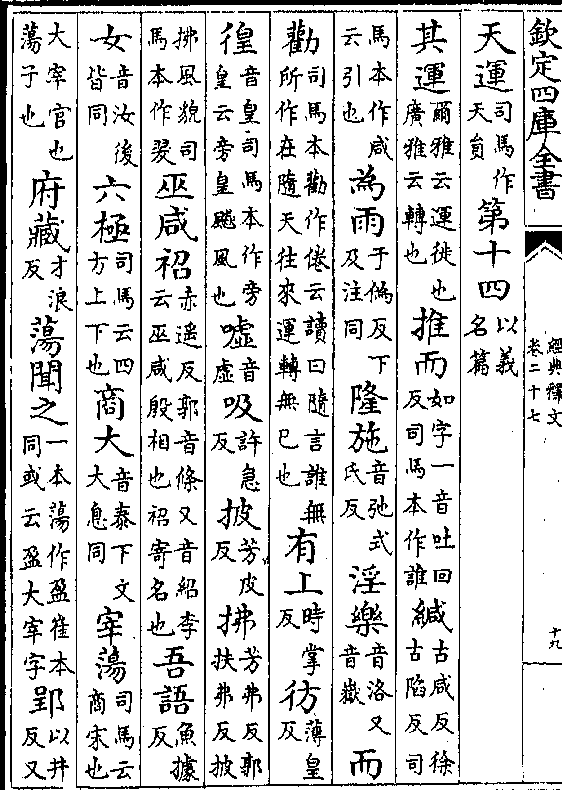 欽定四庫全書
經典釋文
卷二十七
十九
天運司馬作天員第十四以義名篇
其運爾雅云運徙也廣雅云轉也推而如字一音吐回反司馬本作誰緘古咸反徐古陷反司
馬本作咸云引也為雨于偽反下及注同隆施音弛式氏反淫樂音洛又音嶽而
勸司馬本勸作倦云讀曰隨言誰無所作在隨天往來運轉無已也有上時掌反彷薄皇反
徨音皇司馬本作旁皇云旁皇飈風也噓音虛吸許急反披芳皮反拂芳弗反郭扶弗反披
拂風貌司馬本作翇巫咸祒赤遥反郭音條又音紹李云巫咸殷相也祒寄名也吾語魚據反
女音汝後皆同六極司馬云四方上下也商大音泰下文大息同宰蕩司馬云商宋也
大宰官也蕩子也府藏才浪反蕩聞之一本蕩作盈崔本同或云盈大宰字郢以井反又